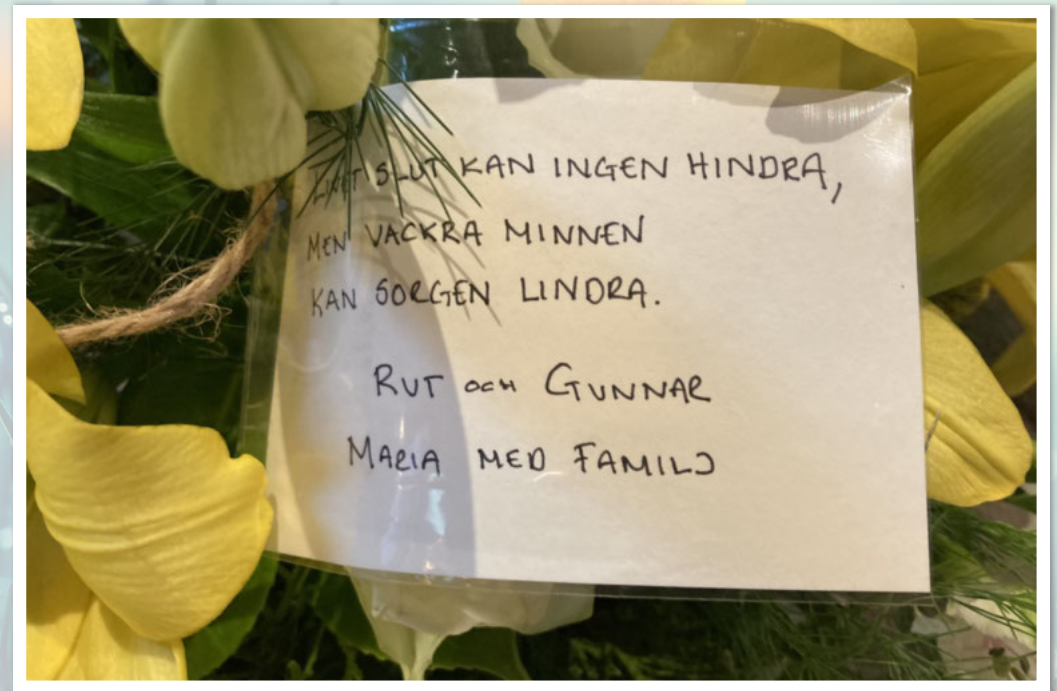 SLUT KAN INGEN HINDRA,
MEN VACKRA MINNEN
KAN SORGEN LINDRA.
RUT OCH GUNNAR
MARIA MED FAMILJ